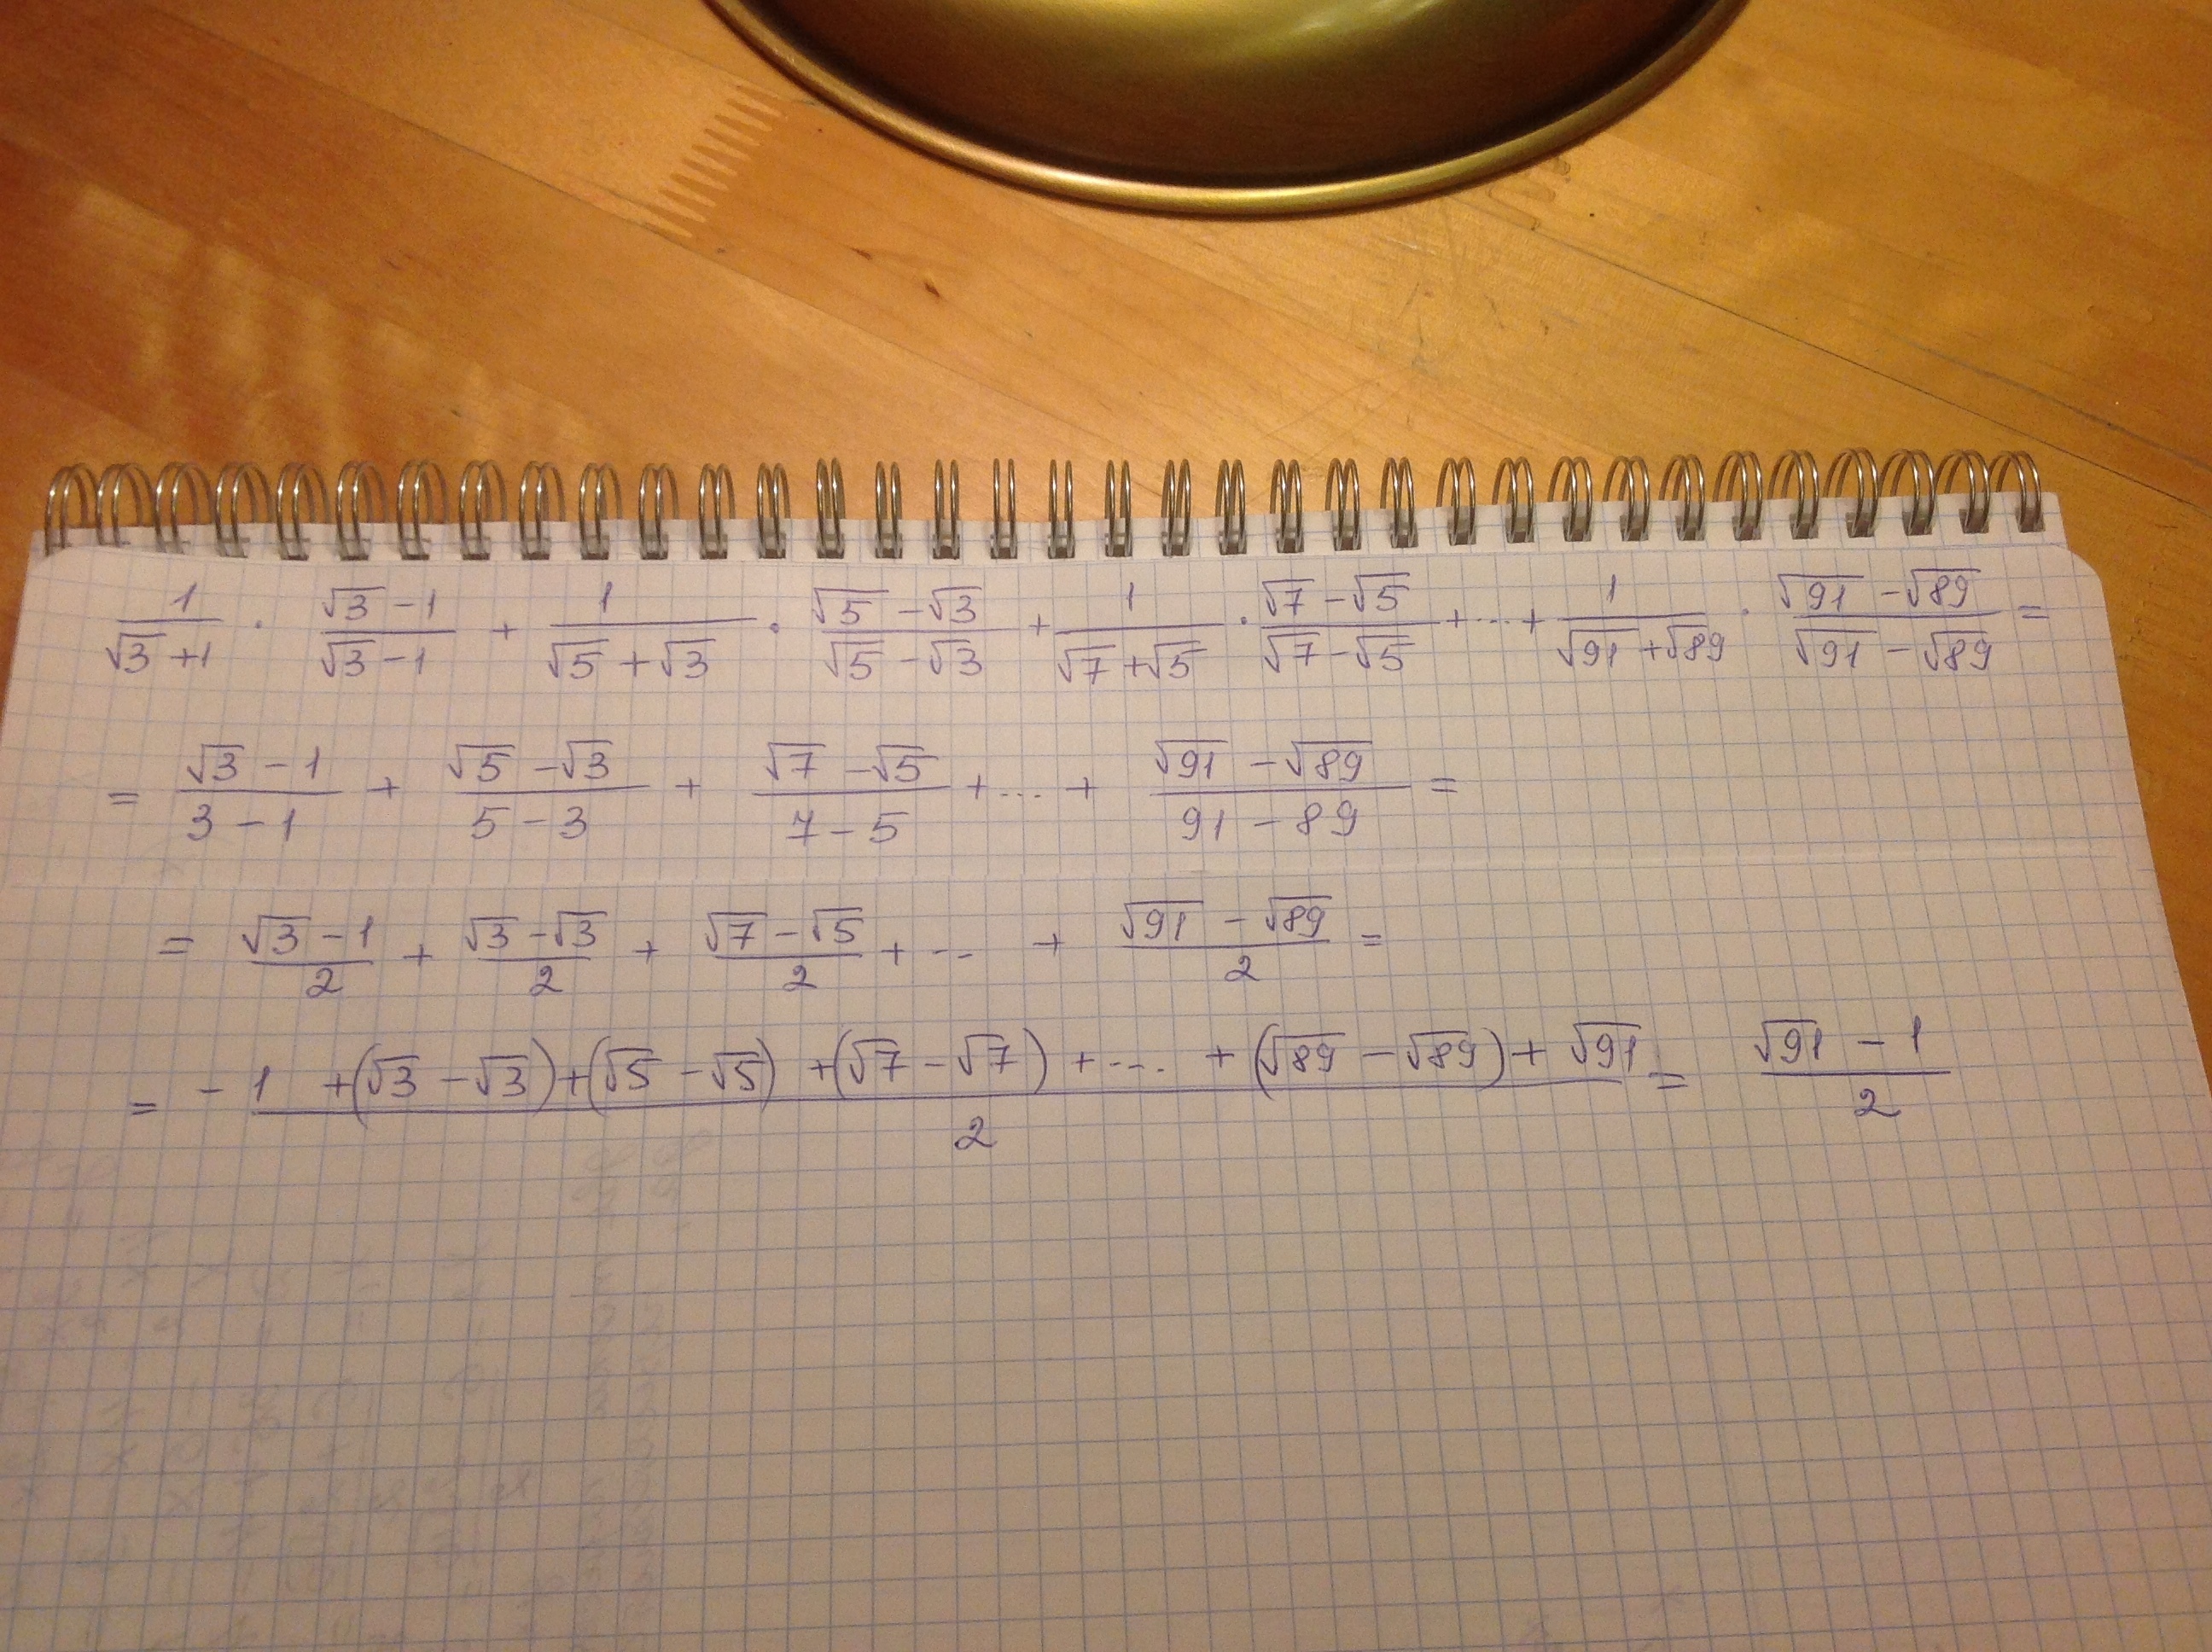 1/(√3 +1) · (√3 -1)/(√3 -1) + 1/(√5 + √3) · (√5 - √3)/(√5 - √3) + 1/(√7 + √5) · (√7 - √5)/(√7 - √5) + ... + 1/(√91 + √89) · (√91 - √89)/(√91 - √89) =
= (√3 - 1)/(3 - 1) + (√5 - √3)/(5 - 3) + (√7 - √5)/(7 - 5) + ... + (√91 - √89)/(91 - 89) =
= (√3 - 1)/2 + (√3 - √3)/2 + (√7 - √5)/2 + ... + (√91 - √89)/2 =
= (-1 + (√3 - √3) + (√5 - √5) + (√7 - √7) + .... + (√89 - √89) + √91)/2 = (√91 - 1)/2